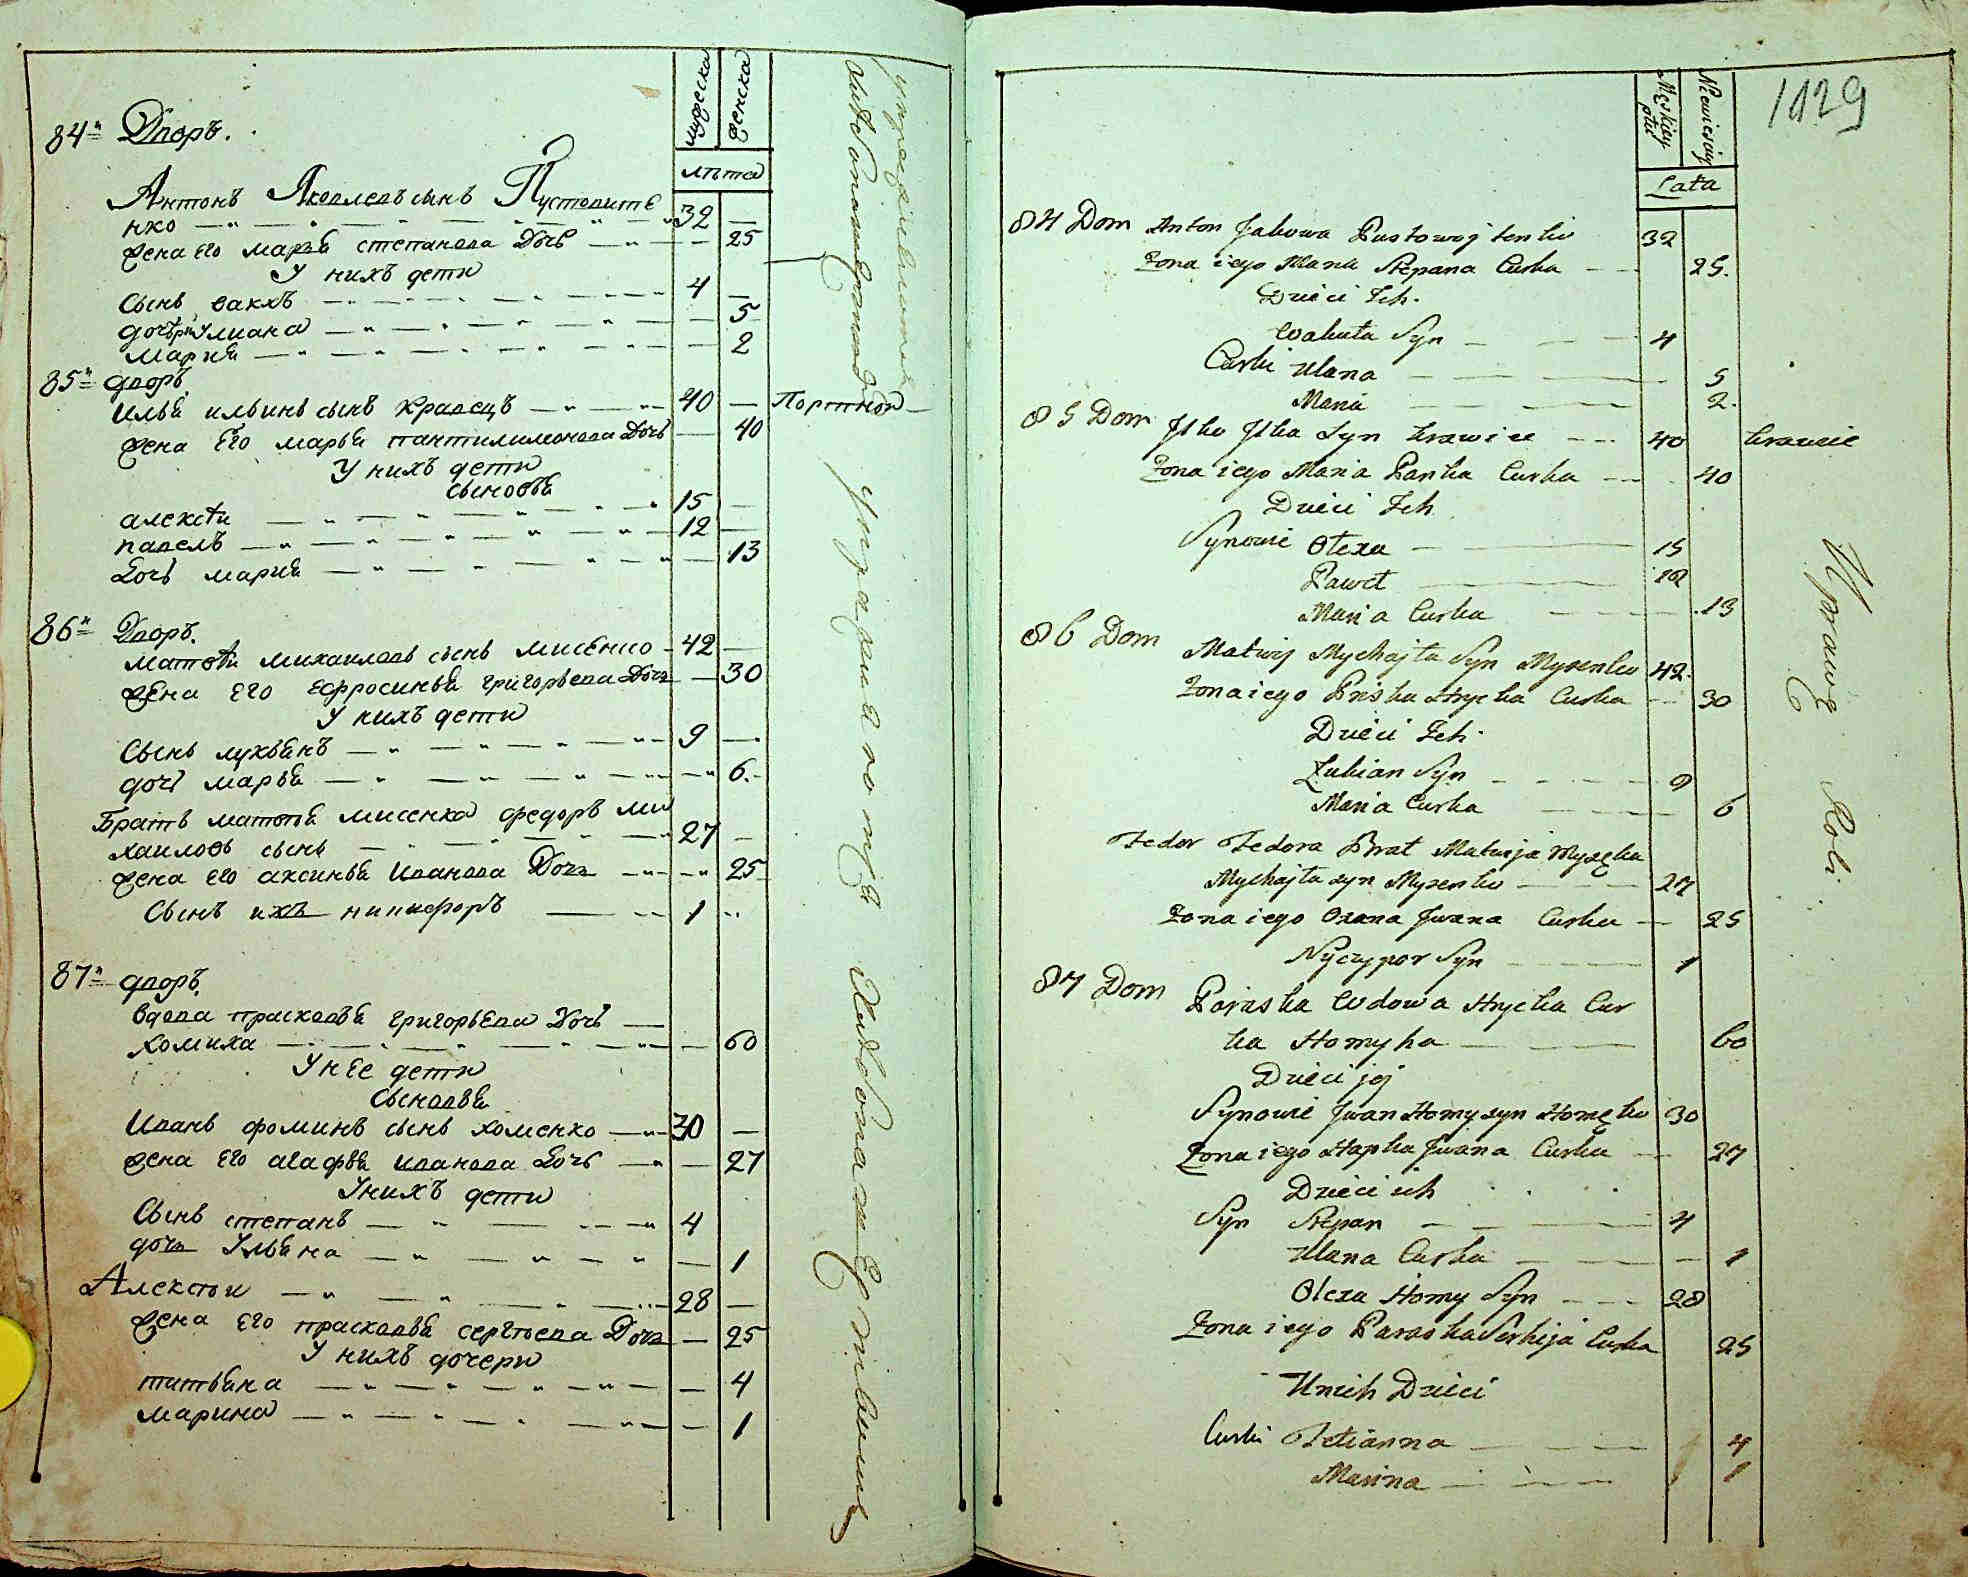 мужеска
женска
лѣта
84й Дворъ.
Антонъ Яковлевъ сынъ Пустовите
нко 32
жена его марья степанова дочь 25
У нихъ дети
Сынъ вакхъ 4
дочери Улиана 5
мария 2
85й дворъ.
Илья ильинъ сынъ кравецъ 40 Портной
жена его марья пантилимонова дочь 40
У нихъ дети
сыновья
алексѣи 15
павелъ 12
дочь мария 13
86й Дворъ.
матвѣи михаиловъ сынъ мисенко 42
жена его ефросинья григорьева дочь 30
У нихъ дети
Сынъ лукьянъ 9
дочь марья 6
Братъ матвѣя мисенка федоръ ми
хаиловъ сынъ 27
жена его аксинья иванова дочь 25
Сынъ ихъ никифоръ 1
87й дворъ.
вдова прасковья григорьева дочь
хомиха 60
У нее дети
Сыновья
Иванъ фоминъ сынъ хоменко 30
жена его агафья иванова дочь 27
У нихъ дети
Сынъ степанъ 4
дочь Ульяна 1
Алексѣи 28
жена его прасковья сергѣева дочь 25
У нихъ дочери
татьяна 4
марина 1
упражняются
хлебопашествомъ
1129
Męskiey płci
Niewiesciey
Lata
84 Dom Anton Jakowa Pustowojtenko 32
Żona iego Maria Stepana Curka 25.
Dzieci Ich.
Wakuła Syn 4
Curki Ulana 5
Maria 2.
85 Dom Ilko Ilka Syn krawiec 40 krawiec
Żona iego Maria Panka Curka 40
Dzieci Ich
Synowie Ołexa 15
Paweł 12
Maria Curka 13
86 Dom Matwij Mychajła Syn Mysenko 42.
Żona iego Priska Hrycka Curka 30
Dzieci Ich.
Łukian Syn 9
Maria Curka 6
Fedor Fedora Brat Matwija Mysęka
Mychajła syn Mysenko 27
Żona iego Oxana Jwana Curka 25
Nyczypor Syn 1
87 Dom Paraska Wdowa Hrycka Cur
ka Homyha 60
Dzieci jej
Synowie Jwan Homy syn Homęko 30
Żona iego Hapka Jwana Curka 27
Dzieci ich
Syn Stepan 4
Ulana Curka 1
Olexa Homy Syn 28
Żona iego Paraska Serhija Curka 25
Unich Dzieci
Curki Tetianna 4
Marina 1
Uprawą Roli.